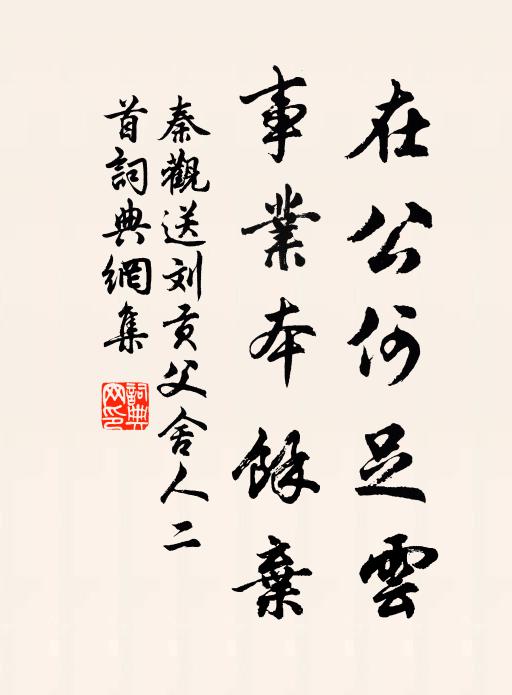 在公何足雲
事業本餘棄
秦觀送刘貢父舍人二
首詞典網集
詞典
网印